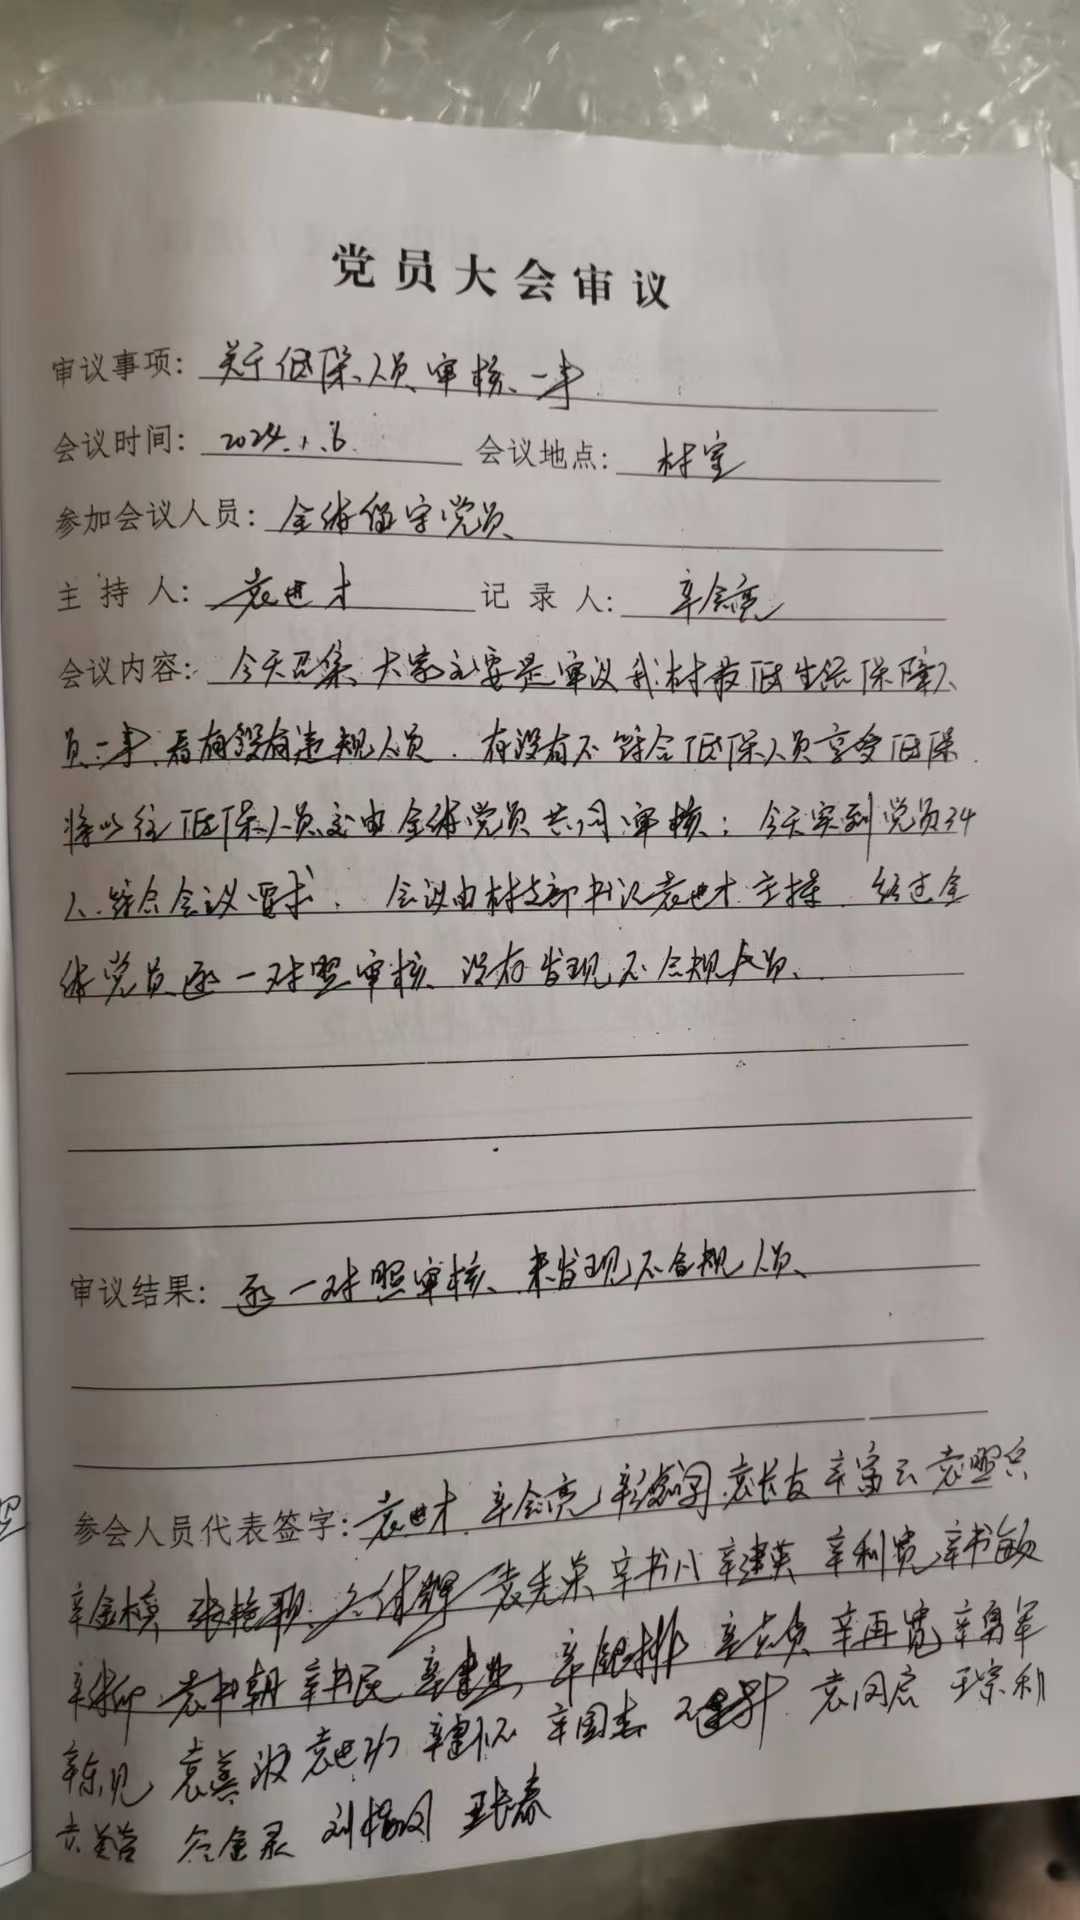 党员大会审议
审议事项：关于低保人员审核一事
会议时间：2024.1.6. 会议地点：村室
参加会议人员：全体留守党员
主持人：袁世才 记录人：辛金亮
会议内容：今天召集大家主要是审议我村最低生活保障人
员一事，看有没有违规人员．有没有不符合低保人员享受低保．
将以往低保人员交由全体党员共同审核；今天实到党员34
人、符合会议要求． 会议由村支部书记袁世才主持．经过全
体党员逐一对照审核、没有发现不合规人员、
审议结果：逐一对照审核、未发现不合规人员、
参会人员代表签字：袁世才 辛金亮 袁长友 辛富云
辛金榜 辛书八 辛建英 辛利贵 辛书敏
袁书朝 辛书民 辛建业 辛银排 辛再宽 辛勇军
辛东见 袁世功 辛建怀 辛国志 王宗利
王长春